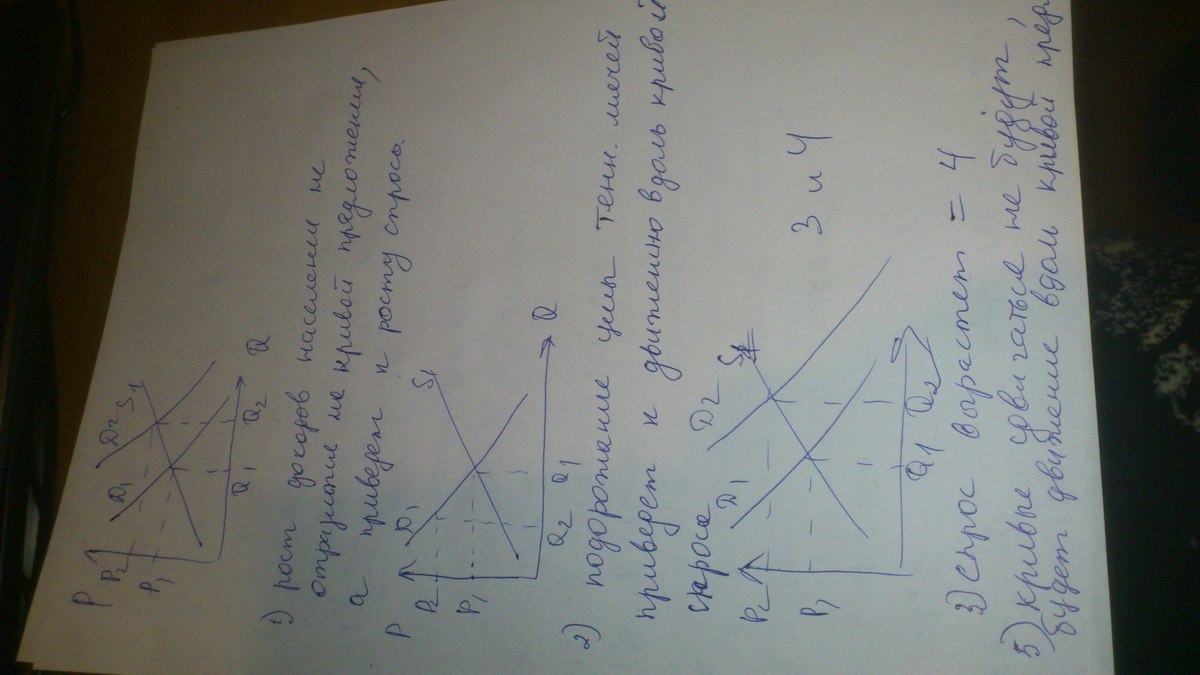 P
P2
P1
D1
D2
S1
Q1
Q2
Q
1) рост доходов населения не
отразится на кривой предложения,
а приведет к росту спроса.
P
P2
P1
D1
S1
Q2
Q1
Q
2) подорожание цены тенн. мячей
приведет к движению вдоль кривой
спроса
P2
P1
D1
D2
Q1
Q2
3 и 4
3) спрос возрастет = 4
5) кривые сдвигаться не будут,
будет движение вдоль кривой пред